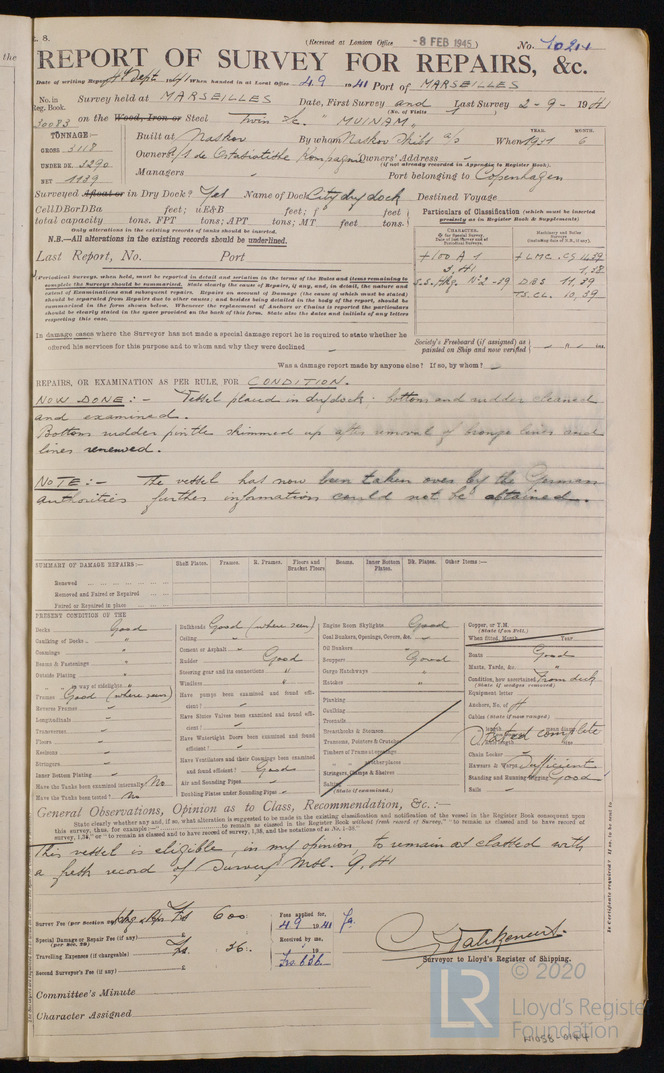 the
t. 8.
(Received at London Office -8 FEB 1945)
No. 10211
REPORT OF SURVEY FOR REPAIRS, &c.
Date of writing Report 4th Sept. 1941 When handed in at Local Office 4.9 1941 Port of MARSEILLES
No. in Reg. Book. Survey held at MARSEILLES Date, First Survey and Last Survey 2-9-1941
(No. of Visits 1)
30083 on the Wood, Iron or Steel Twin Sc. "MUINAM"
TONNAGE:—
GROSS 3118
UNDER DK. 3290
NET 1139
Built at Naskov By whom Naskov Skibs a/s When 1931 6
YEAR. MONTH.
Owners A/S de Ostasiatiske Kompagni Owners' Address
(if not already recorded in Appendix to Register Book).
Managers Port belonging to Copenhagen
Surveyed Afloat or in Dry Dock? Yes Name of Dock City dry dock Destined Voyage
CellDBorDBa feet; uE&B feet; f feet
total capacity tons. FPT tons; APT tons; MT feet tons.
Only alterations in the existing records of tanks should be inserted.
N.B.—All alterations in the existing records should be underlined.
Last Report, No. Port
Particulars of Classification (which must be inserted precisely as in Register Book & Supplements)
CHARACTER.
+100 A 1
3,41
S.S. Hkg. No 2-39
+LMC. CS 11,39
1,38
DBS 11,39
TS.CL. 10,39
Periodical Surveys, when held, must be reported in detail and seriatim in the terms of the Rules and items remaining to complete the Surveys should be summarized. State clearly the cause of Repairs, if any, and, in detail, the nature and extent of Examinations and subsequent repairs. Repairs on account of Damage (the cause of which must be stated) should be separated from Repairs due to other causes; and besides being detailed in the body of the report, should be summarized in the form shown below. Whenever the replacement of Anchors or Chains is reported the particulars should be clearly stated in the space provided on the back of this form. State also the dates and initials of any letters respecting this case.
In damage cases where the Surveyor has not made a special damage report he is required to state whether he offered his services for this purpose and to whom and why they were declined
Society's Freeboard (if assigned) as painted on Ship and now verified ins.
Was a damage report made by anyone else? If so, by whom?
REPAIRS, OR EXAMINATION AS PER RULE, FOR CONDITION.
NOW DONE:- Vessel placed in drydock: bottom and rudder cleaned
and examined.
Bottom rudder pintle skimmed up after removal of bronze liner and
liner renewed.
NOTE:- The vessel has now been taken over by the German
authorities further information could not be obtained.
SUMMARY OF DAMAGE REPAIRS:— Shell Plates. Frames. R. Frames. Floors and Bracket Floors Beams. Inner Bottom Plates. Dk. Plates. Other Items:—
Renewed
Removed and Faired or Repaired
Faired or Repaired in place
PRESENT CONDITION OF THE
Decks Good
Caulking of Decks "
Coamings "
Beams & Fastenings "
Outside Plating "
" " in way of sidelights "
Frames Good (where seen)
Reverse Frames "
Longitudinals "
Transverses "
Floors "
Keelsons "
Stringers "
Inner Bottom Plating "
Have the Tanks been examined internally? No
Have the Tanks been tested? No
Bulkheads Good (where seen)
Ceiling "
Cement or Asphalt "
Rudder Good
Steering gear and its connections "
Windlass "
Have pumps been examined and found efficient? "
Have Sluice Valves been examined and found efficient? "
Have Watertight Doors been examined and found efficient? "
Have Ventilators and their Coamings been examined and found efficient? Good
Air and Sounding Pipes "
Doubling Plates under Sounding Pipes "
Engine Room Skylights Good
Coal Bunkers, Openings, Covers, &c. "
Oil Bunkers "
Scuppers Good
Cargo Hatchways "
Hatches "
Planking
Caulking
Treenails
Breasthooks & Stemson
Transoms, Pointers & Crutches
Timbers of Frame at openings
" " other places
Stringers, Clamps & Shelves
(State if examined.)
Copper, or Y.M.
(State if on Felt.)
When fitted, Month Year
Boats Good
Masts, Yards, &c. "
Condition, how ascertained From deck
Equipment letter
Anchors, No. of 4
Cables (State if now ranged)
Stated complete
Chain Locker
Hawsers & Warps Sufficient
Standing and Running Rigging Good
Sails
General Observations, Opinion as to Class, Recommendation, &c. :—
State clearly whether any and, if so, what alteration is suggested to be made in the existing classification and notification of the vessel in the Register Book consequent upon
This vessel is eligible, in my opinion, to remain as classed with
a fresh record of Survey Mrsl. 9,41
Survey Fee (per Section 29) Frs 600
Special Damage or Repair Fee (if any) (per Sec. 29)
Travelling Expenses (if chargeable) Frs. 36:
Second Surveyor's Fee (if any)
Fees applied for, 4.9 1941
Received by me, 19
Frs. 636.
Surveyor to Lloyd's Register of Shipping.
Committee's Minute
Character Assigned
Is Certificate required?
LR © 2020
Lloyd's Register
Foundation
W1058-0144